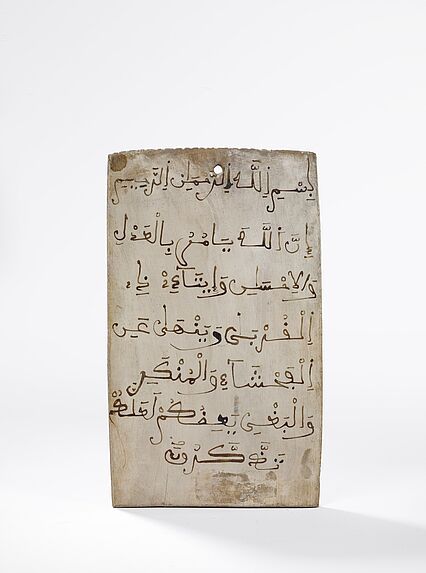 بِسْمِ اِللَّهِ اِلرَّحْمَٰنِ اِلرَّحِيمِ
إِنَّ اَللَّهَ يَامُرُ بِالْعَدْلِ
وَالِاحْسَٰنِ وَإِيتَآءِے ذِے
اِلْقُرْبَىٰ وَيَنْهَىٰ عَنِ
اِلْفَحْشَآءِ وَالْمُنكَرِ
وَالْبَغْيِ يَعِظُكُمْ لَعَلَّكُمْ
تَذَّكَّرُونَ